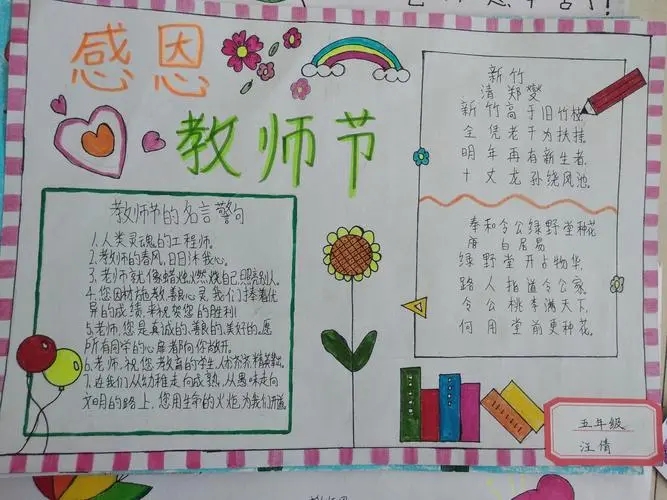 感恩
教师节
教师节的名言警句
1.人类灵魂的工程师。
2.教师的春风,日日沐我心。
3.老师就像蜡烛燃烧自己照亮别人。
4.您因材施教,善良心灵,我们捧着优
异的成绩,来祝贺您的胜利!
5.老师,您是真诚的、善良的、美好的。愿
所有同学的心扉都向你敞开。
6.老师,祝您教育的学生,人才齐齐,精英辈出。
7.在我们从幼稚走向成熟,从愚昧走向
文明的路上,您用生命的火炬为我们开道。
新竹
清 郑燮
新竹高于旧竹枝
全凭老干为扶持
明年再有新生者
十丈龙孙绕凤池。
奉和令公绿野堂种花
唐 白居易
绿野堂开占物华,
路人指道令公家。
令公桃李满天下,
何用堂前更种花。
五年级
汪倩